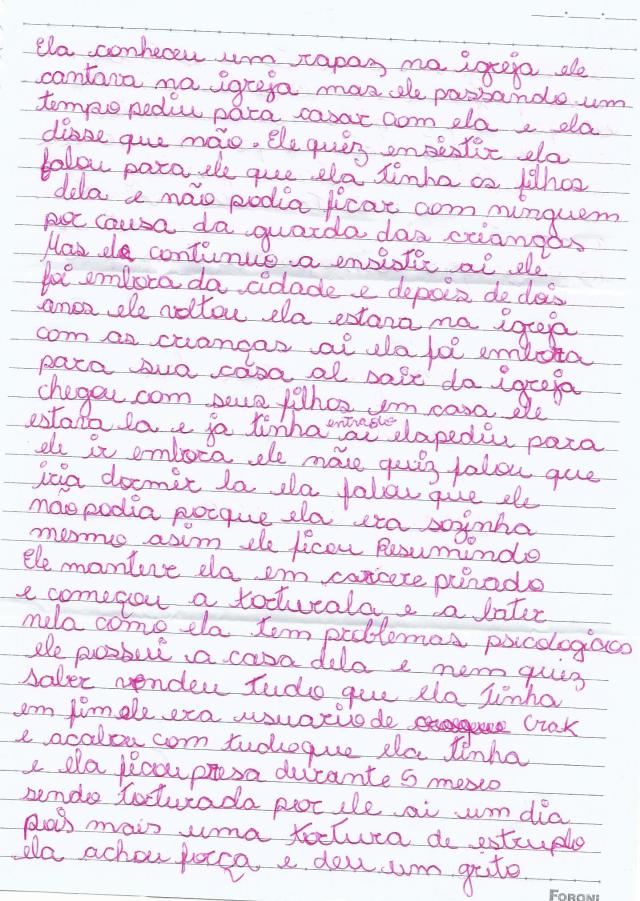 Ela conheceu um rapaz na igreja ele
cantava na igreja mas ele passando um
tempo pediu para casar com ela e ela
disse que não. Ele quiz ensistir ela
falou para ele que ela tinha os filhos
dela e não podia ficar com ninguem
por causa da guarda das crianças
Mas ele continuo a ensistir ai ele
foi embora da cidade e depois de dois
anos ele voltou ela estava na igreja
com as crianças ai ela foi embora
para sua casa al sair da igreja
chegou com seus filhos em casa ele
estava la e ja tinha entrado ai ela pediu para
ele ir embora ele não quiz falou que
iria dormir la ela falou que ele
não podia porque ela era sozinha
mesmo asim ele ficou Resumindo
Ele manteve ela em carcere privado
e começou a torturala e a bater
nela como ela tem problemas psicologicos
ele possui a casa dela e nem quiz
saber vendeu tudo que ela tinha
em fim ele era usuario de crak
e acabou com tudo que ela tinha
e ela ficou presa durante 5 meses
sendo torturada por ele ai um dia
pois mais uma tortura de estruplo
ela achou força e deu um grito
FORONI